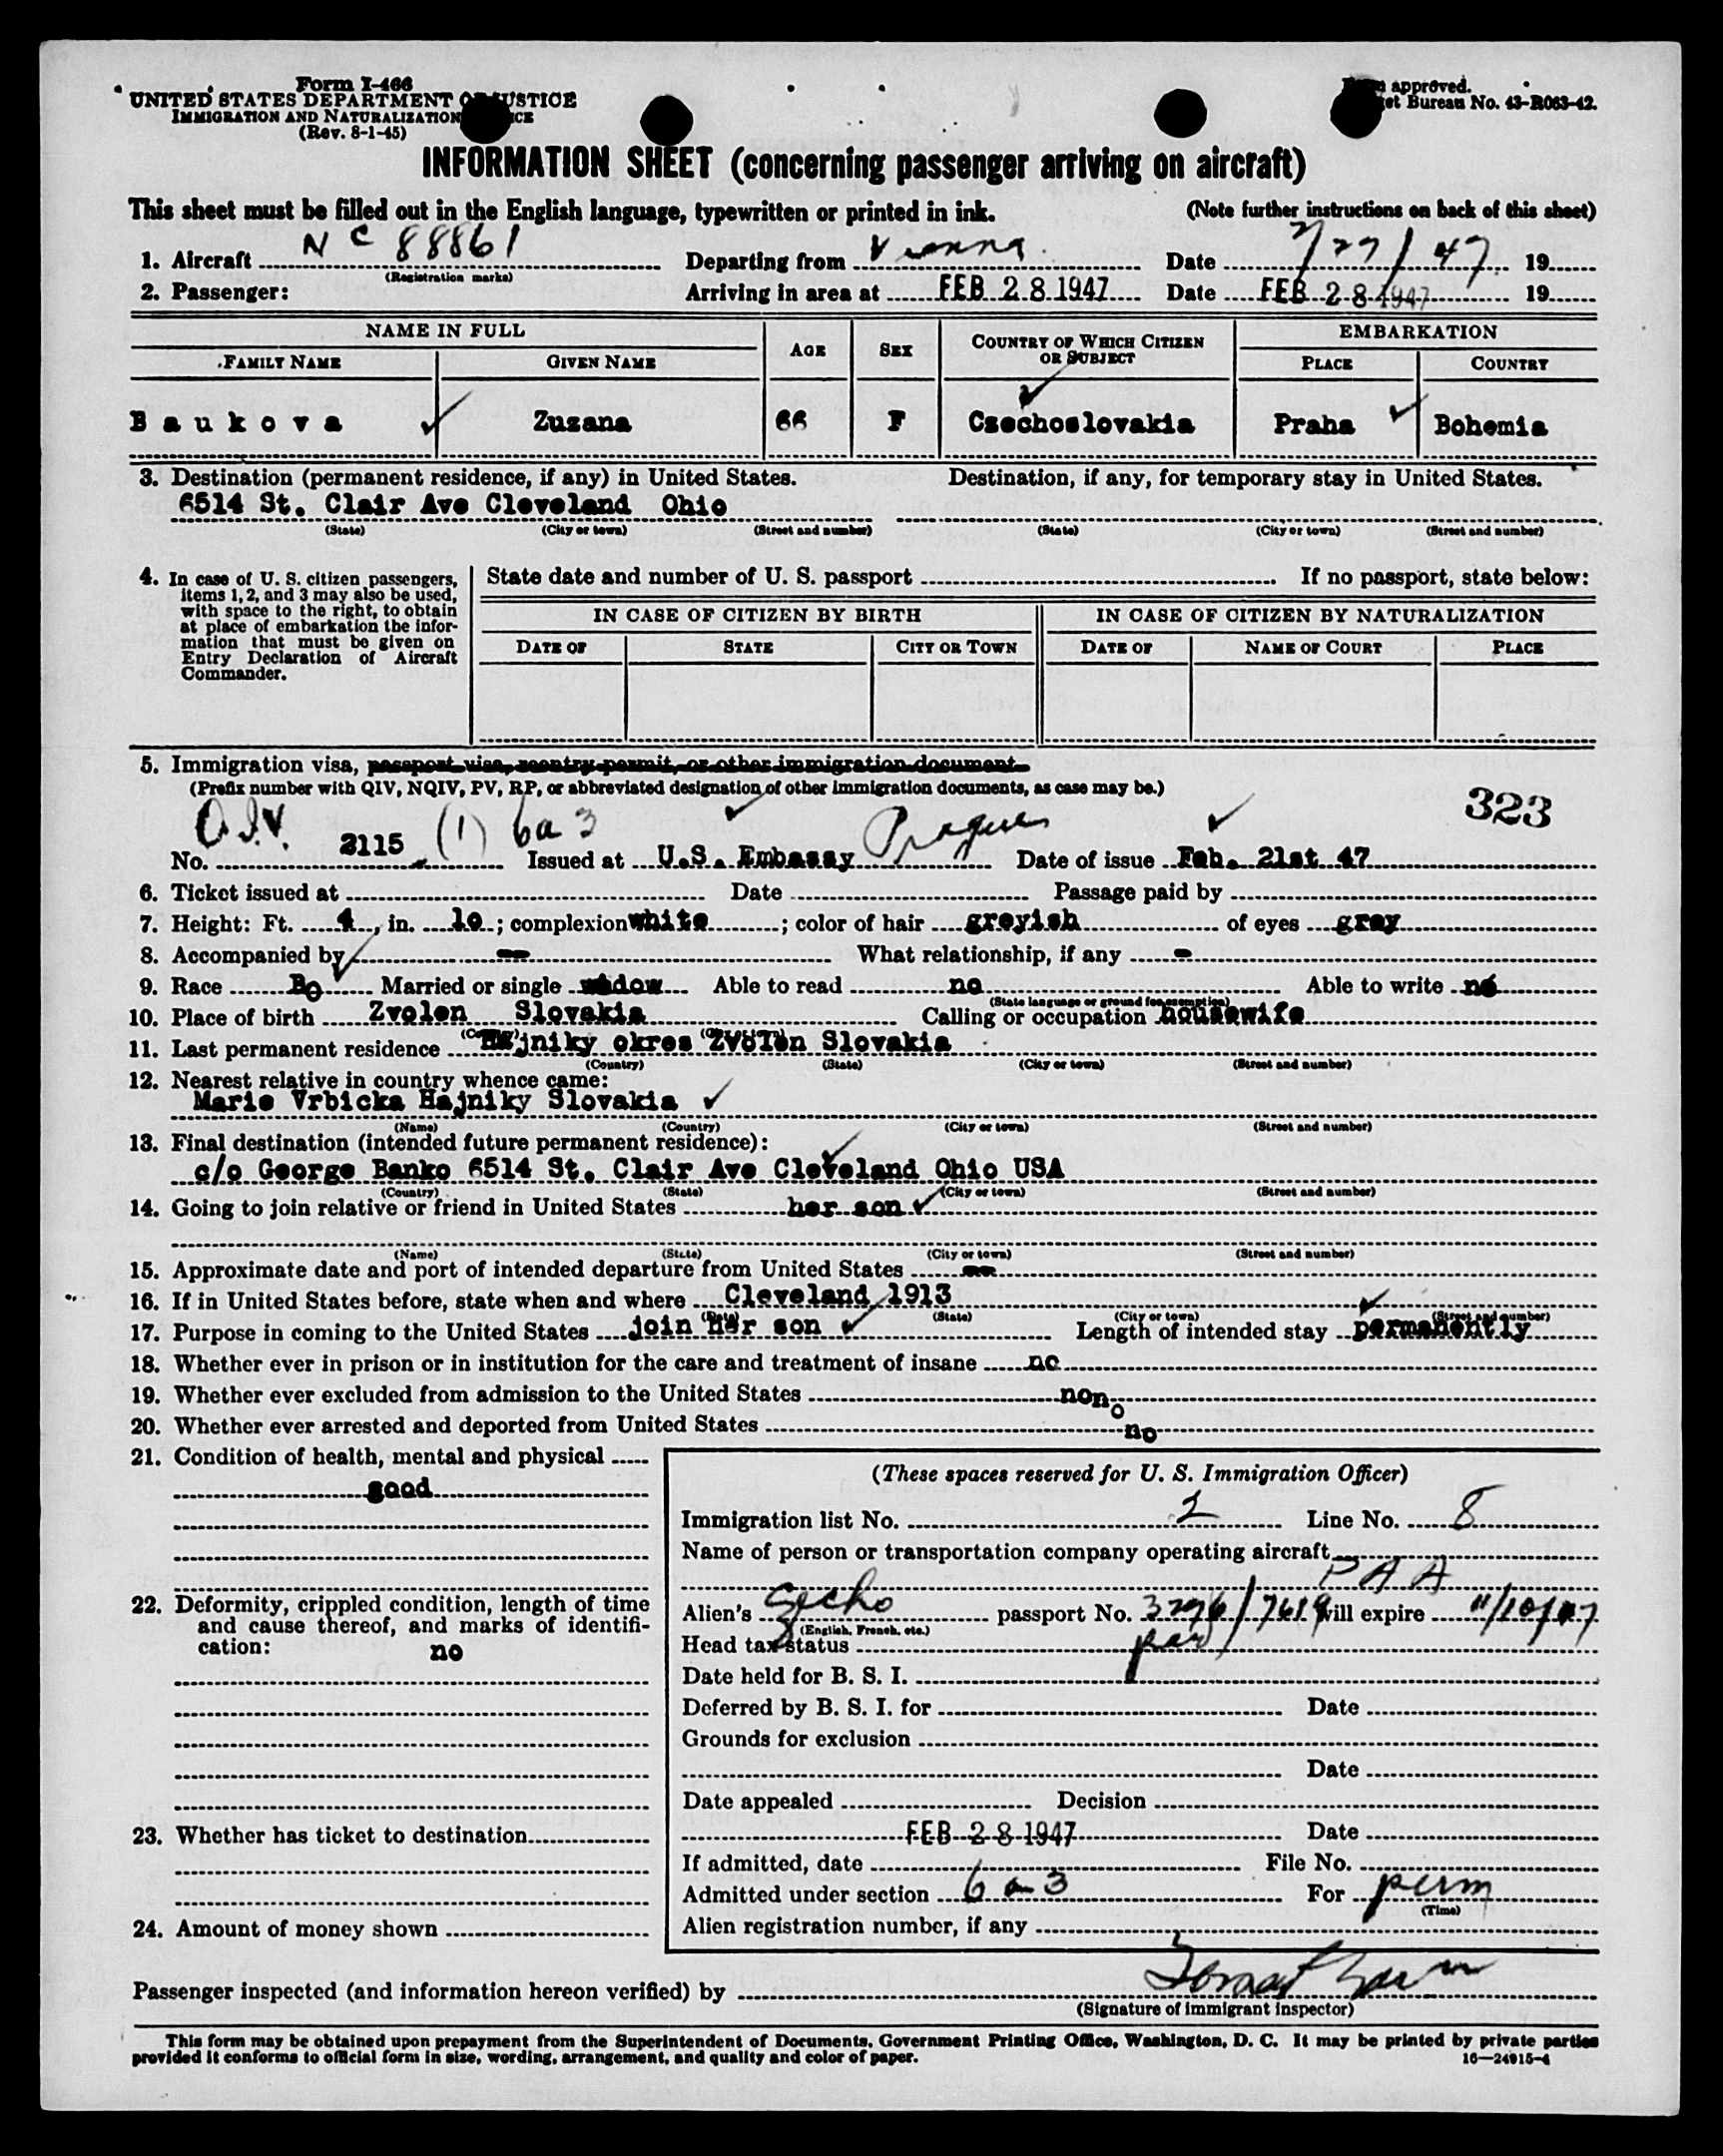 Form I-466
UNITED STATES DEPARTMENT OF JUSTICE
IMMIGRATION AND NATURALIZATION
(Rev. 8-1-45)
approved.
et Bureau No. 43-R063-42.
INFORMATION SHEET (concerning passenger arriving on aircraft)
This sheet must be filled out in the English language, typewritten or printed in ink. (Note further instructions on back of this sheet)
1. Aircraft NC 88861 Departing from Vienna Date 2/27/47 19
(Registration marks)
2. Passenger: Arriving in area at FEB 28 1947 Date FEB 28 1947 19
NAME IN FULL AGE SEX COUNTRY OF WHICH CITIZEN OR SUBJECT EMBARKATION
FAMILY NAME GIVEN NAME PLACE COUNTRY
Baukova Zuzana 66 F Czechoslovakia Praha Bohemia
3. Destination (permanent residence, if any) in United States. Destination, if any, for temporary stay in United States.
6514 St. Clair Ave Cleveland Ohio
(State) (City or town) (Street and number) (State) (City or town) (Street and number)
4. In case of U. S. citizen passengers, items 1, 2, and 3 may also be used, with space to the right, to obtain at place of embarkation the information that must be given on Entry Declaration of Aircraft Commander.
State date and number of U. S. passport If no passport, state below:
IN CASE OF CITIZEN BY BIRTH IN CASE OF CITIZEN BY NATURALIZATION
DATE OF STATE CITY OR TOWN DATE OF NAME OF COURT PLACE
5. Immigration visa, passport visa, reentry permit, or other immigration document
(Prefix number with QIV, NQIV, PV, RP, or abbreviated designation of other immigration documents, as case may be.)
323
No. 2115 (1) 6a3 Issued at U.S. Embassy Prague Date of issue Feb. 21st 47
6. Ticket issued at Date Passage paid by
7. Height: Ft. 4, in. 10; complexion white; color of hair greyish of eyes gray
8. Accompanied by -- What relationship, if any -
9. Race Bo Married or single widow Able to read no Able to write no
(State language or ground for exemption)
10. Place of birth Zvolen Slovakia Calling or occupation housewife
11. Last permanent residence Hajniky okres Zvolen Slovakia
(Country) (State) (City or town) (Street and number)
12. Nearest relative in country whence came:
Marie Vrbicka Hajniky Slovakia
(Name) (Country) (City or town) (Street and number)
13. Final destination (intended future permanent residence):
c/o George Banko 6514 St. Clair Ave Cleveland Ohio USA
(Country) (State) (City or town) (Street and number)
14. Going to join relative or friend in United States her son
(Name) (State) (City or town) (Street and number)
15. Approximate date and port of intended departure from United States --
16. If in United States before, state when and where Cleveland 1913
(Date) (State) (City or town) (Street and number)
17. Purpose in coming to the United States join her son Length of intended stay permanently
18. Whether ever in prison or in institution for the care and treatment of insane no
19. Whether ever excluded from admission to the United States non
20. Whether ever arrested and deported from United States no
21. Condition of health, mental and physical
good
22. Deformity, crippled condition, length of time and cause thereof, and marks of identification:
no
23. Whether has ticket to destination
24. Amount of money shown
(These spaces reserved for U. S. Immigration Officer)
Immigration list No. 2 Line No. 8
Name of person or transportation company operating aircraft
PAA
Alien's passport No. 3276/7619 Will expire 11/10/47
(English, French, etc.)
Head tax status
Date held for B. S. I.
Deferred by B. S. I. for Date
Grounds for exclusion
Date
Date appealed Decision
FEB 28 1947 Date
If admitted, date File No.
Admitted under section 6 a 3 For perm
(Time)
Alien registration number, if any
Passenger inspected (and information hereon verified) by
(Signature of immigrant inspector)
This form may be obtained upon prepayment from the Superintendent of Documents, Government Printing Office, Washington, D. C. It may be printed by private parties
provided it conforms to official form in size, wording, arrangement, and quality and color of paper. 16—24915-4